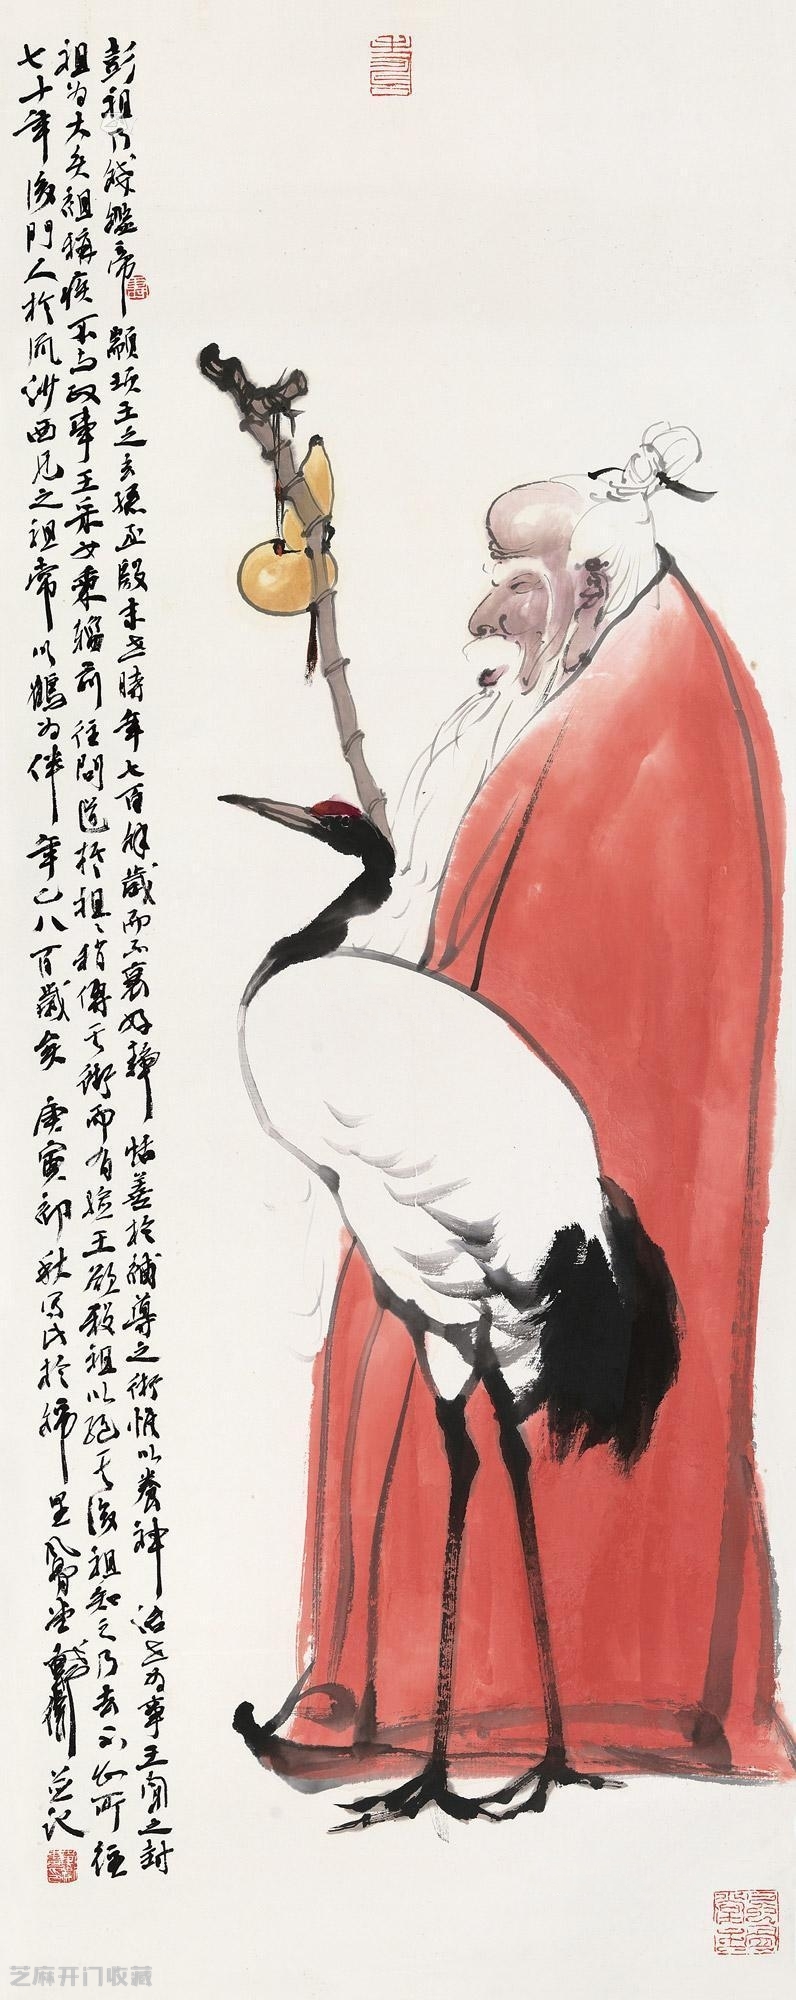 彭祖乃籛鏗帝顓頊王之玄孫至殷末世時年七百餘歲而不衰好靜恬善於補導之術惟以養神治世為事王聞之封
祖為大夫祖稱疾不與政事王采女乘輜前往問道於祖〻稍傳其術而有驗王欲殺祖以絕其後祖知之乃去不知所往
七十年後門人於流沙西見之祖常以鶴為伴年已八百歲矣 庚寅初秋寫此於 並記
芝麻开门收藏